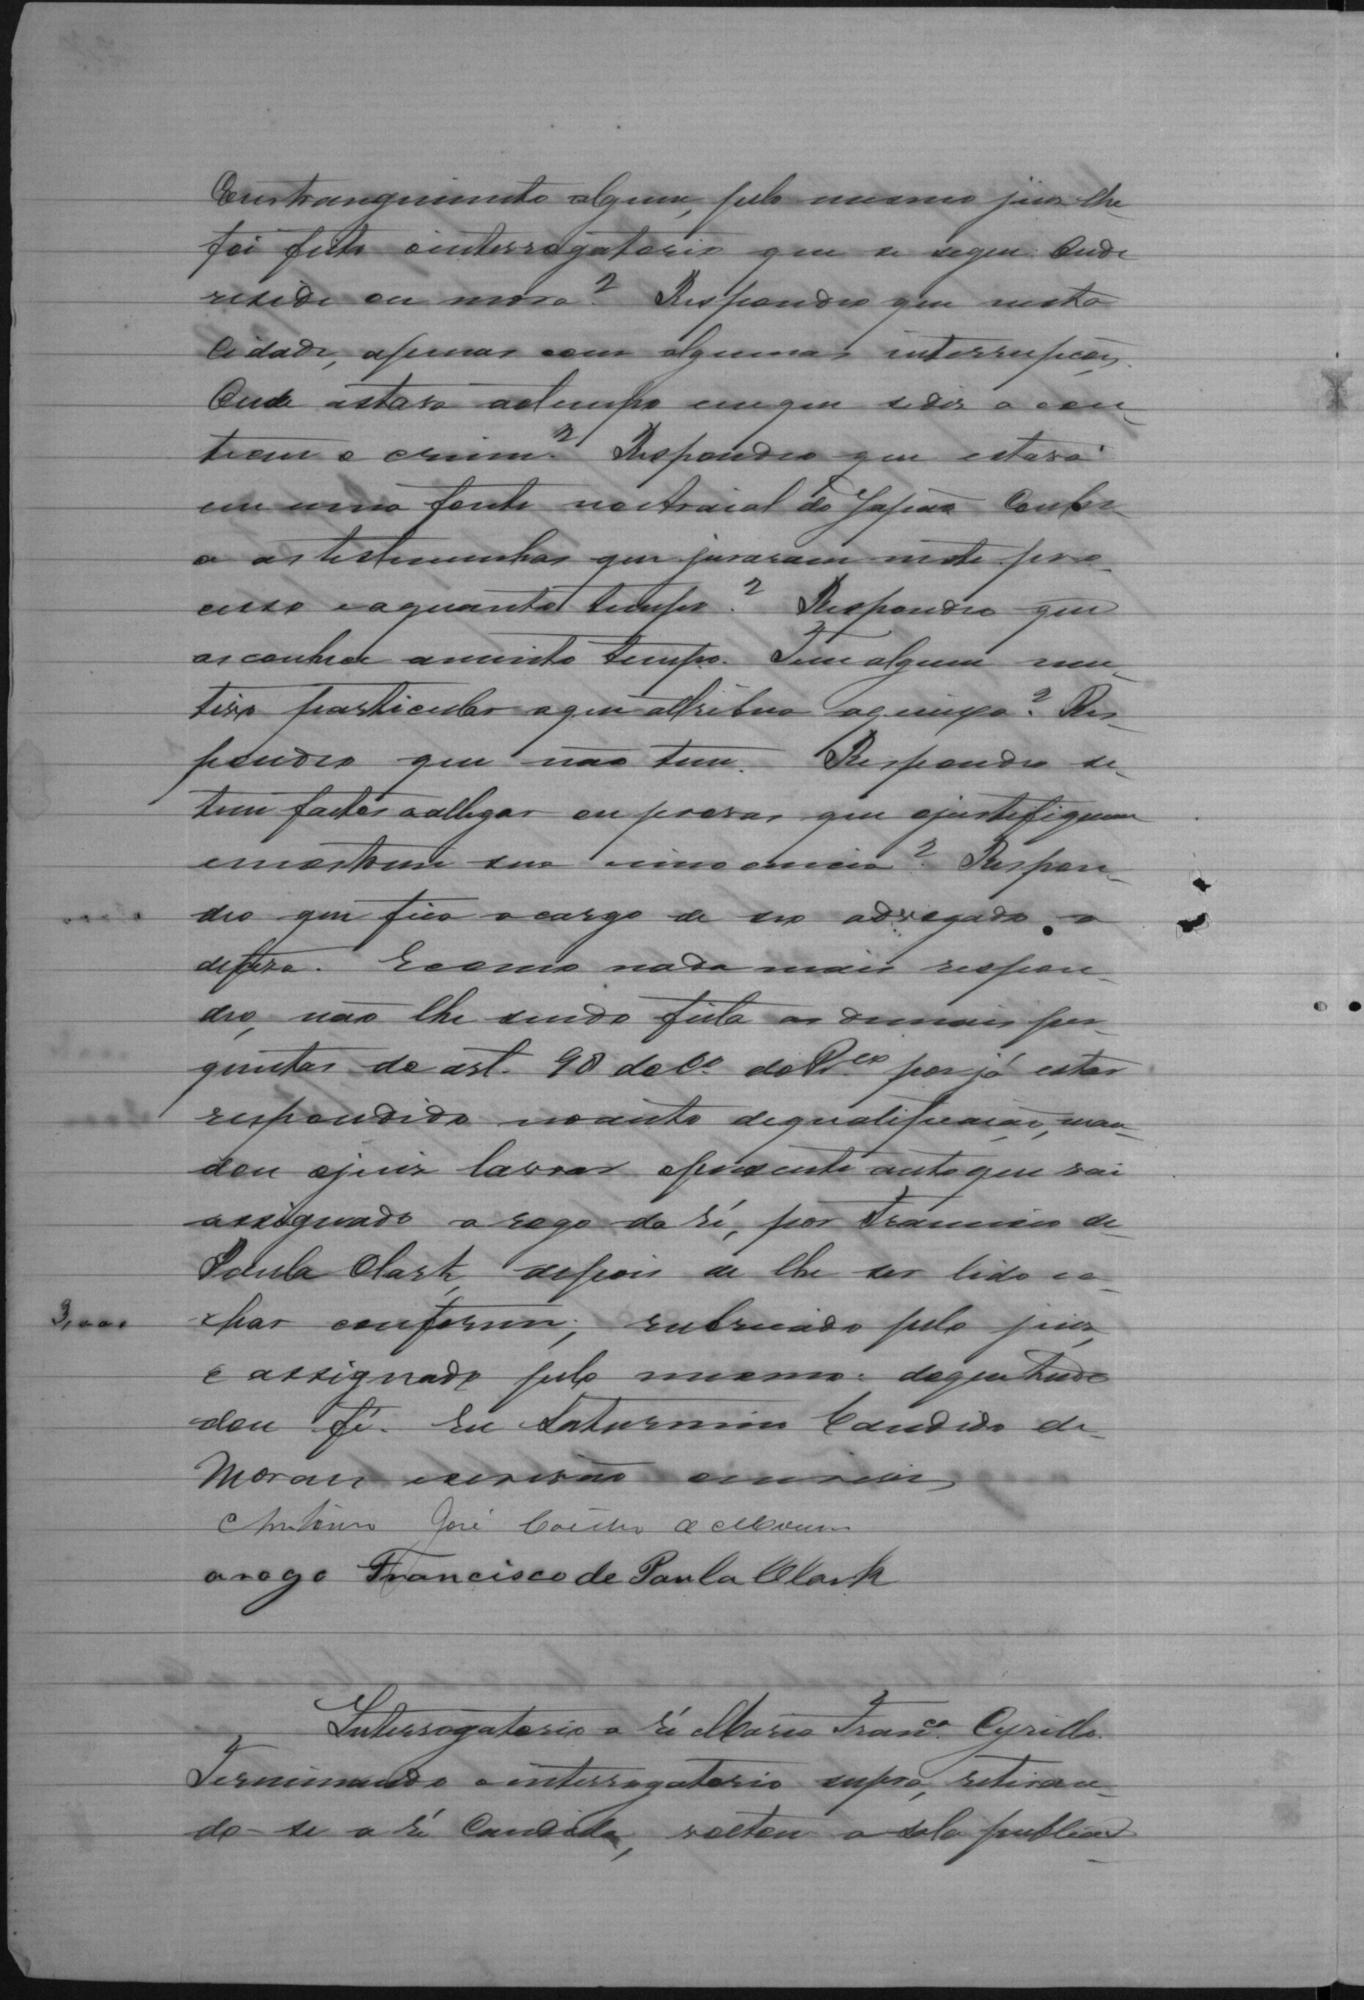 Constrangimento algum, pelo mesmo juiz lhe
foi feito o interrogatorio que se segue. Onde
reside ou mora? Respondeo que nesta
Cidade, apenas com algumas interrupções.
Onde estava ao tempo em que se diz acon-
teceu o crime? Respondeo que estava
em uma fonte no Arraial do Conhe-
ce as testemunhas que juraram neste pro-
cesso e a quanto tempo? Respondeo que
as conhece a muito tempo. Tem algum mo-
tivo particular a que attribua a queixa? Res-
pondeo que não tem. Respondeo se
tem factos a allegar ou provas que o justifiquem
e mostrem sua innocencia? Respon-
deo que fica a cargo de seo advogado a
defesa. E como nada mais respon-
deo, não lhe sendo feita as demais per-
guntas do art. 98 do Co. do Pr.co por já estar
respondido no auto de qualificação, man-
dou o juiz lavrar o presente auto que vai
assignado a rogo da ré, por Francisco de
Paula Clark, depois de lhe ser lido e a-
3,000 char conforme; rubricado pelo juiz,
e assignado pelo mesmo: do que tudo
dou fé. Eu Saturnino Candido de
Moraes escrivão escrevi
Antonio José Coelho de Moura
arogo Francisco de Paula Clark
Interrogatorio a ré Maria Franca. Cyrilla.
Terminando o interrogatorio supra, retiran-
do-se a ré Candida, voltou a sala publica